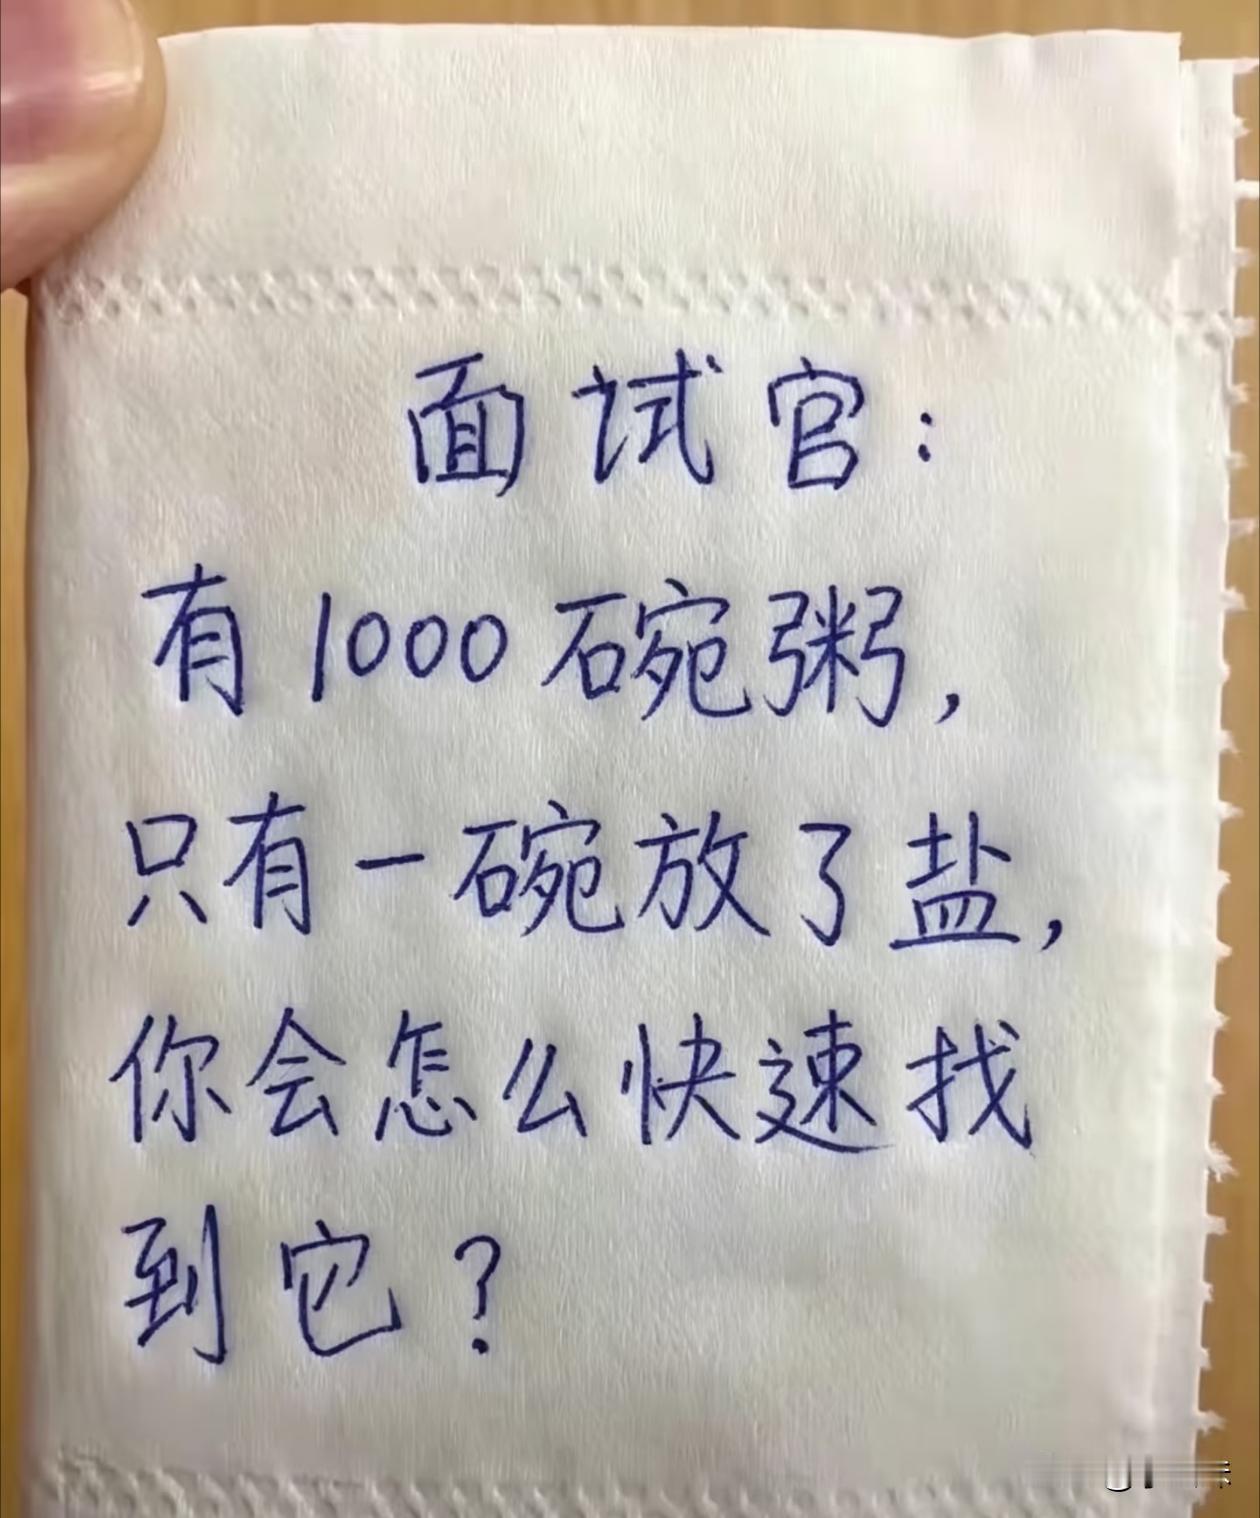 面试官：
有1000碗粥，
只有一碗放了盐，
你会怎么快速找
到它？